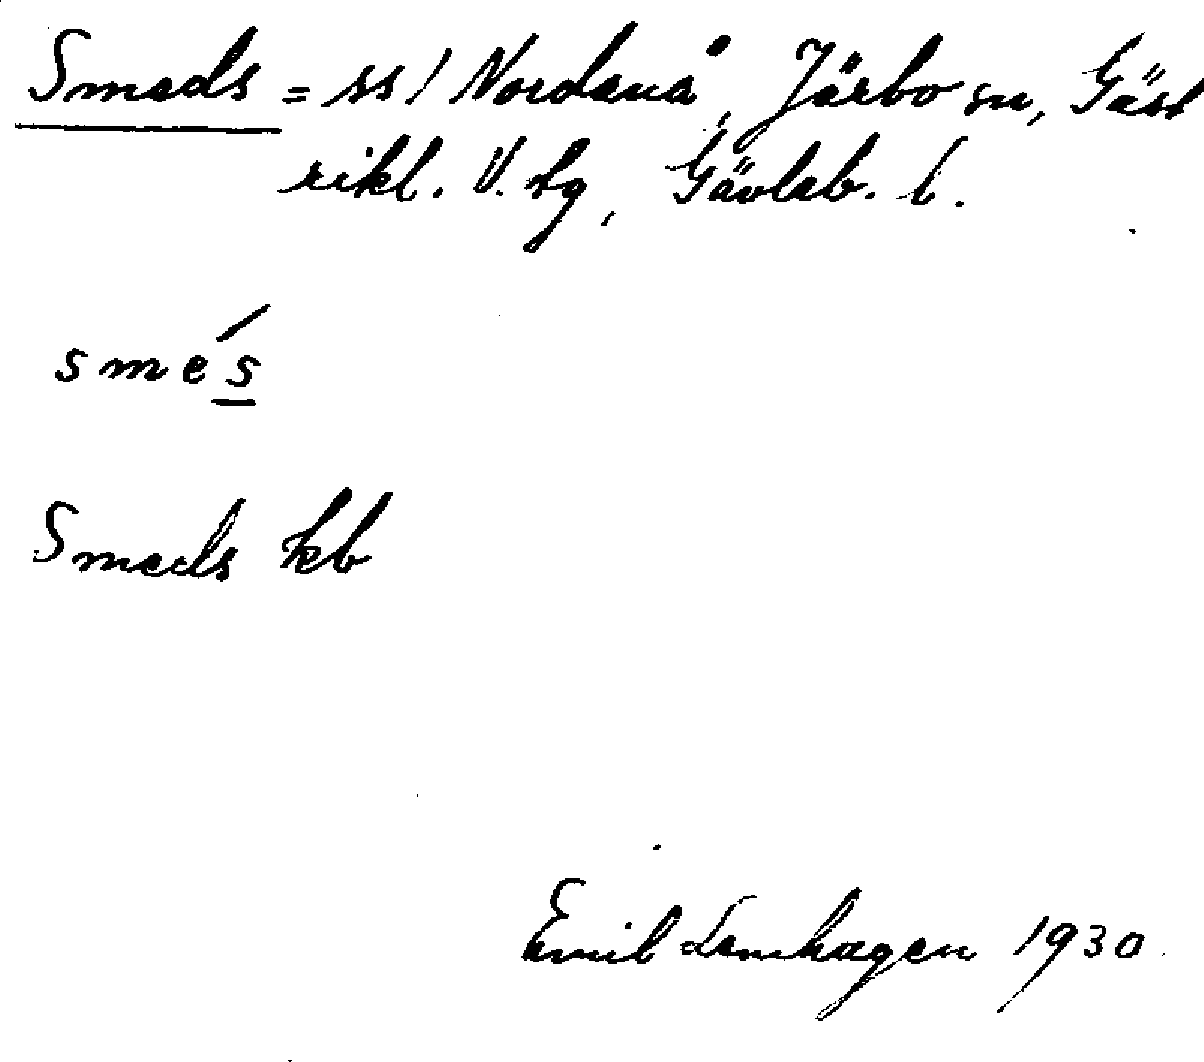 Smeds = ss/ Nordanå, Järbo sn, Gäst
rikl. V. tg, Gävleb. l.
smés
Smeds kb
Emil Lenhagen 1930